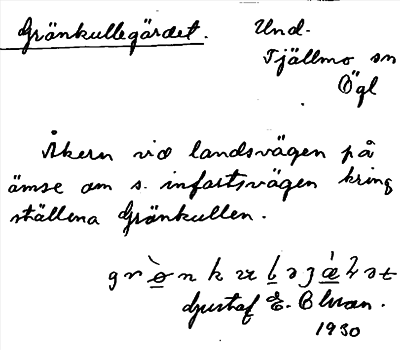 Gränkullegärdet. Und.
Tjällmo sn
Ögl
Åkern vid landsvägen på
ömse om s. infartsvägen kring
ställena Gränkullen.
Gustaf E.
1930